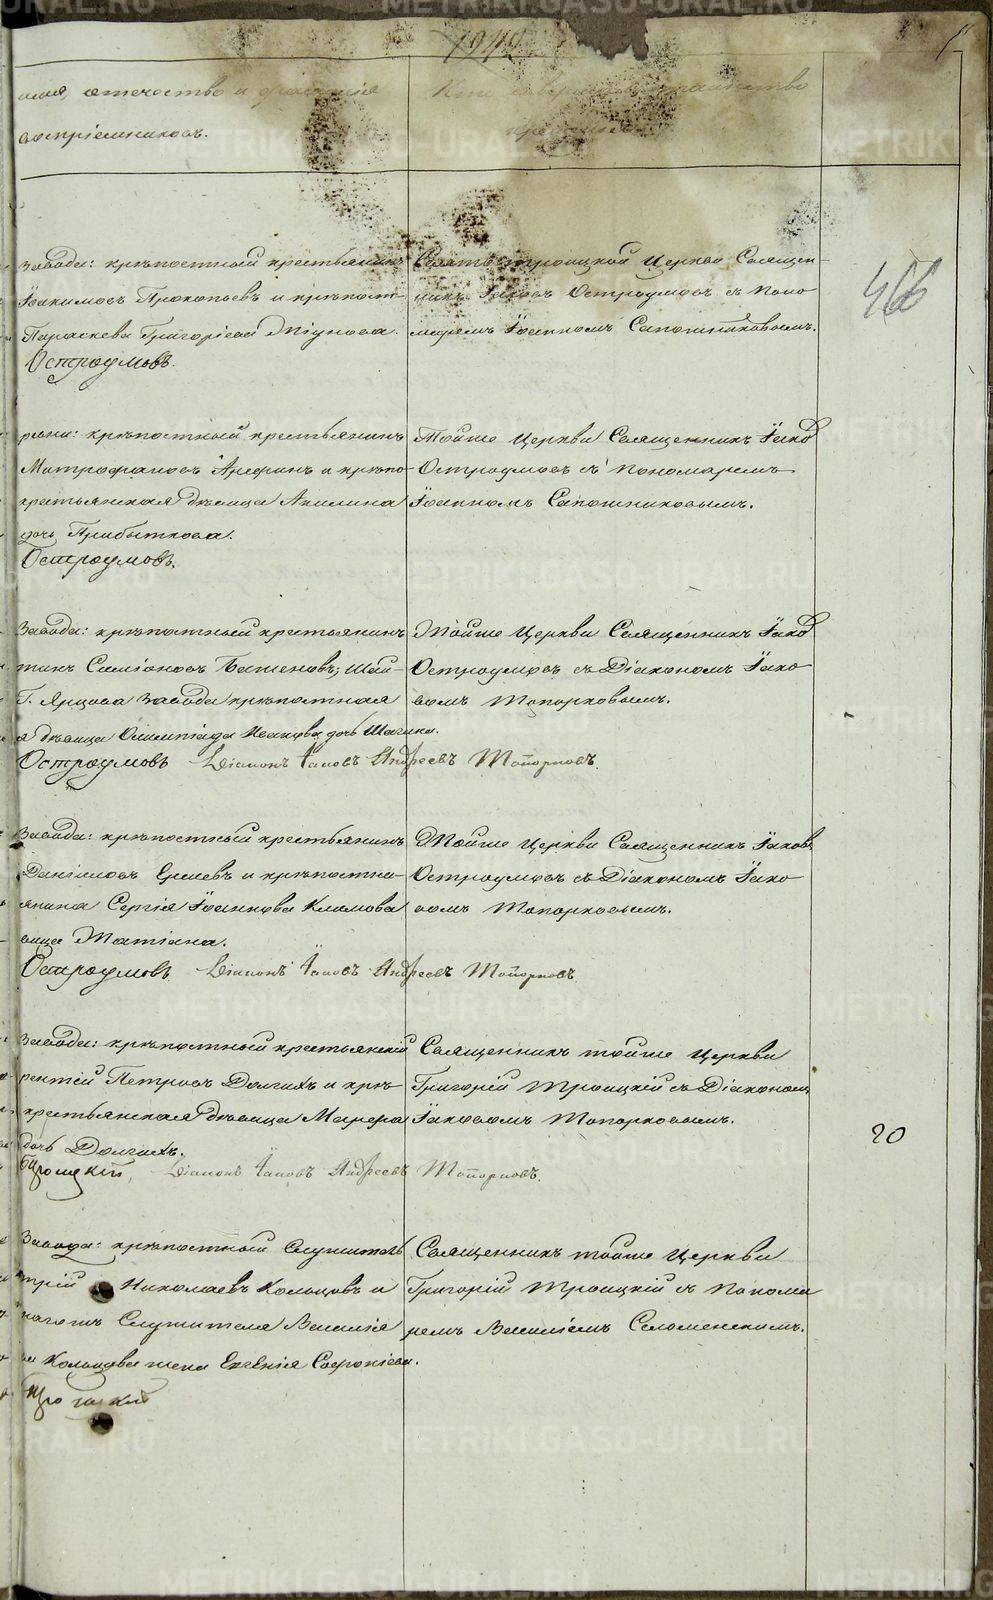 имя, отечество и фамилія
воспріемниковъ.
Кто совершалъ таинство
крещенія
Завода: крѣпостный крестьянинъ
Іоакимовъ Прокопьевъ и крѣпост-
Параскева Григорьева
Остроумовъ.
Свято-Троицкой Церкви Священ-
никъ Іаковъ Остроумовъ съ Поно
маремъ Іоанномъ Сапожниковымъ.
466
ревни: крѣпостный крестьянинъ
Митрофановъ Арефинъ и крѣпо
крестьянская дѣвица Акилина
дочь Прибыткова.
Остроумовъ.
Тойже Церкви Священникъ Іаковъ
Остроумовъ съ Пономаремъ
Іоанномъ Сапожниковымъ.
Завода: крѣпостный крестьянинъ
тинъ Симіоновъ Баженовъ; Шай-
Г. Ярцова Завода крѣпостная
я дѣвица Олимпіада Иванова дочь Шагина.
Остроумовъ Діаконъ Іаковъ Андреевъ Топорковъ.
Тойже Церкви Священникъ Іаковъ
Остроумовъ съ Діакономъ Іако
вомъ Топорковымъ.
Завода: крѣпостный крестьянинъ
Даніиловъ Ершевъ и крѣпостна-
янина Сергія Іоаннова Климова
вица Татіана.
Остроумовъ Діаконъ Іаковъ Андреевъ Топорковъ
Тойже Церкви Священникъ Іаковъ
Остроумовъ съ Діакономъ Іако
вомъ Топорковымъ.
Завода: крѣпостный крестьянскій
рентій Петровъ Долгихъ и крѣ-
крестьянская дѣвица Марфа
дочь Долгихъ.
Троицкій, Діаконъ Іаковъ Андреевъ Топорковъ.
Священникъ тойже Церкви
Григорій Троицкій съ Діакономъ
Іаковомъ Топорковымъ.
20
Завода: крѣпостный Служитель
трій Николаевъ Кольцовъ и
наготъ Служителя Василія
ва Кольцова жена Евгенія Софоніева.
Троицкій
Священникъ тойже Церкви
Григорій Троицкій съ Понома
ремъ Василіемъ Селоменскимъ.
METRIKI.GASO-URAL.RU